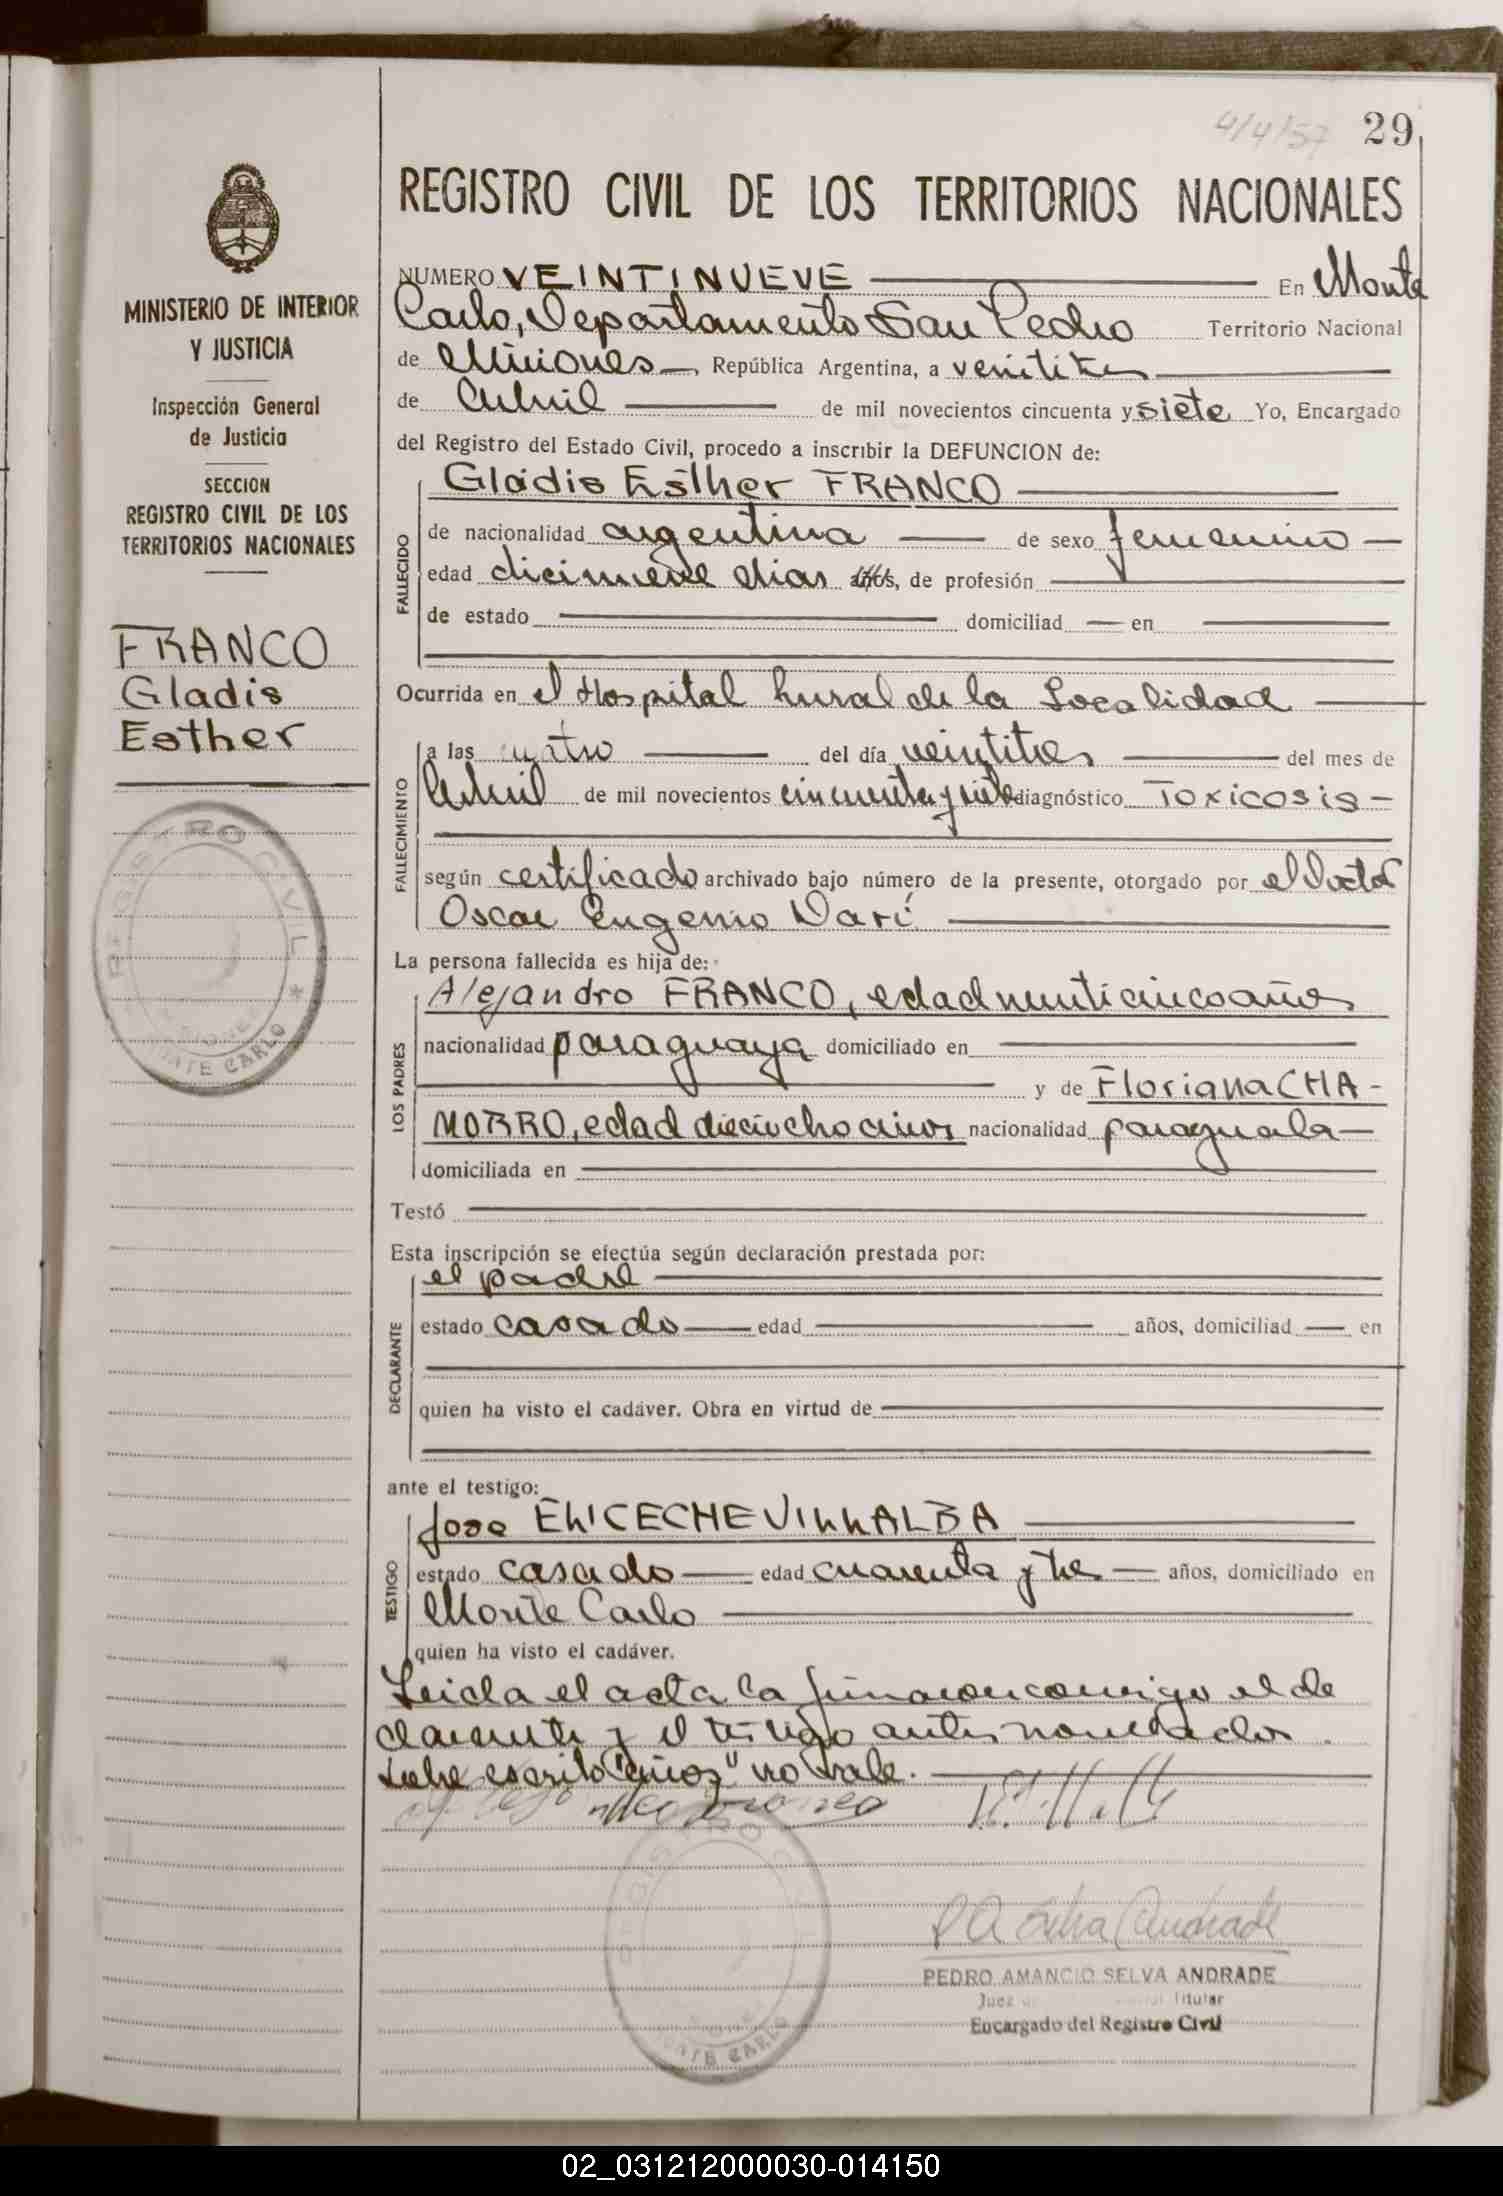 4/4/57 29
REGISTRO CIVIL DE LOS TERRITORIOS NACIONALES
MINISTERIO DE INTERIOR
Y JUSTICIA
Inspección General
de Justicia
SECCION
REGISTRO CIVIL DE LOS
TERRITORIOS NACIONALES
FRANCO
Gladis
Esther
REGISTRO CIVIL
MISIONES
MONTE CARLO
NUMERO VEINTINUEVE En Monte
Carlo, Departamento San Pedro Territorio Nacional
de Misiones, República Argentina, a veintitres
de Abril de mil novecientos cincuenta y siete Yo, Encargado
del Registro del Estado Civil, procedo a inscribir la DEFUNCION de:
Gladis Esther FRANCO
FALLECIDO
de nacionalidad argentina de sexo femenino
edad diecinueve dias años, de profesión
de estado domiciliad en
Ocurrida en el Hospital rural de la Localidad
FALLECIMIENTO
a las cuatro del día veintitres del mes de
Abril de mil novecientos cincuenta y siete diagnóstico Toxicosis-
según certificado archivado bajo número de la presente, otorgado por el Doctor
Oscar Eugenio Darí
La persona fallecida es hija de:
LOS PADRES
Alejandro FRANCO, edad veinticinco años
nacionalidad paraguaya domiciliado en
y de Floriana CHA-
MORRO, edad dieciocho años nacionalidad paraguaia
domiciliada en
Testó
Esta inscripción se efectúa según declaración prestada por:
DECLARANTE
el padre
estado casado edad años, domiciliad en
quien ha visto el cadáver. Obra en virtud de
ante el testigo:
TESTIGO
Jose ELICECHE VILLALBA
estado casado edad cuarenta y tres años, domiciliado en
Monte Carlo
quien ha visto el cadáver.
Leida el acta la firmaron conmigo el de
clarante y el testigo antes nombrados.
Sobre escrito "años" no vale.
REGISTRO CIVIL
MONTE CARLO
P A Selva Andrade
PEDRO AMANCIO SELVA ANDRADE
Juez Titular
Encargado del Registro Civil
02_031212000030-014150